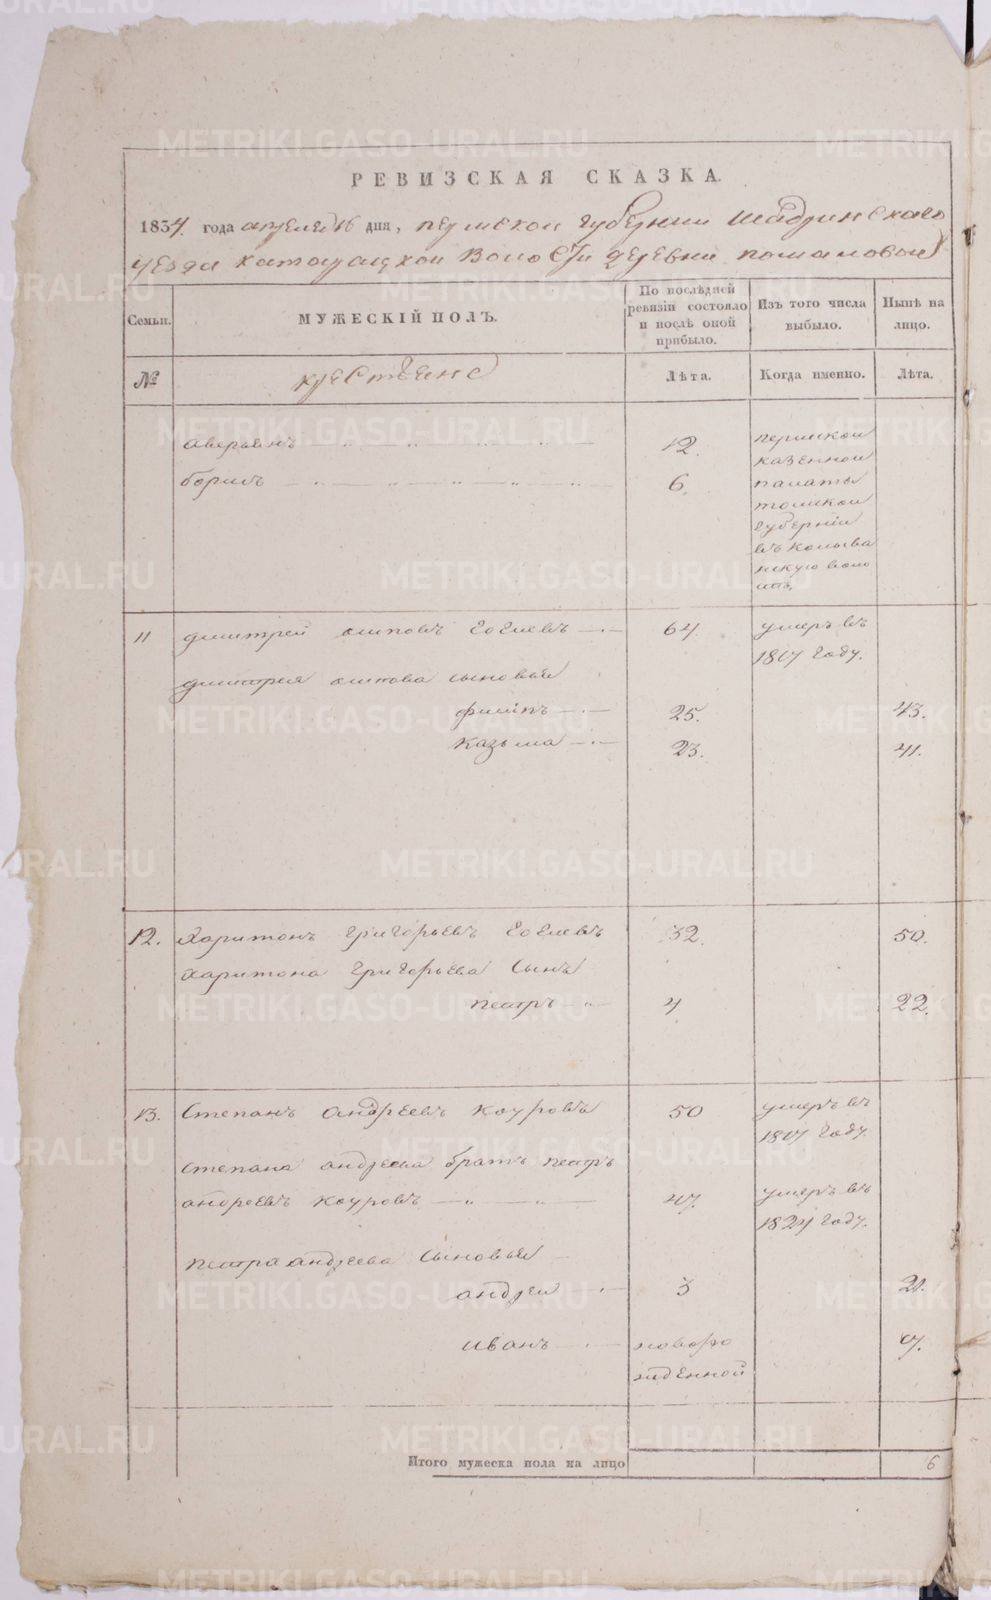 РЕВИЗСКАЯ СКАЗКА.
1834 года апреля 16 дня, пермской губернии Шадринскаго
уезда катайской Волости деревни
Семьи. МУЖЕСКІЙ ПОЛЪ. По послѣдней ревизіи состояло и послѣ оной прибыло. Изъ того числа выбыло. Нынѣ на лицо.
№ крестьяне Лѣта. Когда именно. Лѣта.
аверьянъ 12. пермской
казенной
борисъ 6. палаты
томской
губерніи
въ колыва
нскую воло
сть,
11 дмитрей осиповъ 64. умеръ въ
1817 году.
дмитрея осипова сыновья
филипъ 25. 43.
казьма 23. 41.
12. Харитонъ григорьевъ 32. 50.
харитона григорьева сынъ
петръ 4 22.
13. Степанъ андреевъ коуровъ 50 умеръ въ
1817 году.
степана андреева братъ петръ
андреевъ коуровъ 47. умеръ въ
1824 году.
петра андреева сыновья
андрей 3 21.
иванъ новоро
жденной
Итого мужеска пола на лицо 6
METRIKI.GASO-URAL.RU